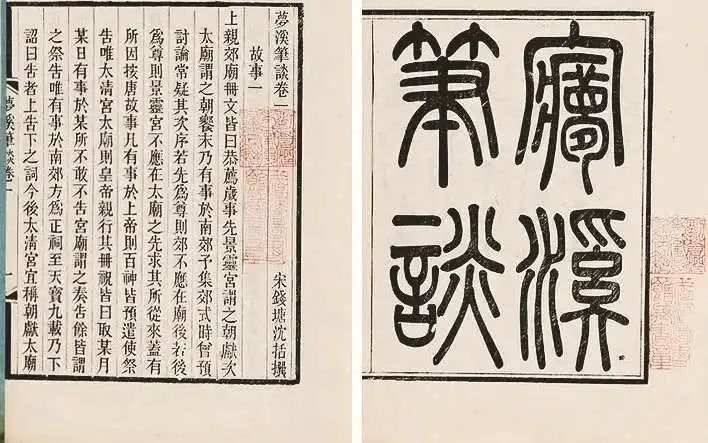 㝱溪
筆談
夢溪筆談卷一 宋錢塘沈括撰
故事一
上親郊廟冊文皆曰恭薦歲事先景靈宮謂之朝獻次
太廟謂之朝饗末乃有事於南郊予集郊式時曾預
討論常疑其次序若先爲尊則郊不應在廟後若後
爲尊則景靈宮不應在太廟之先求其所從來蓋有
所因按唐故事凡有事於上帝則百神皆預遣使祭
告唯太清宮太廟則皇帝親行其冊祝皆曰取某月
某日有事於某所不敢不告宮廟謂之奏告餘皆謂
之祭告唯有事於南郊方爲正祠至天寶九載乃下
詔曰告者上告下之詞今後太清宮宜稱朝獻太廟
夢溪筆談卷一
一